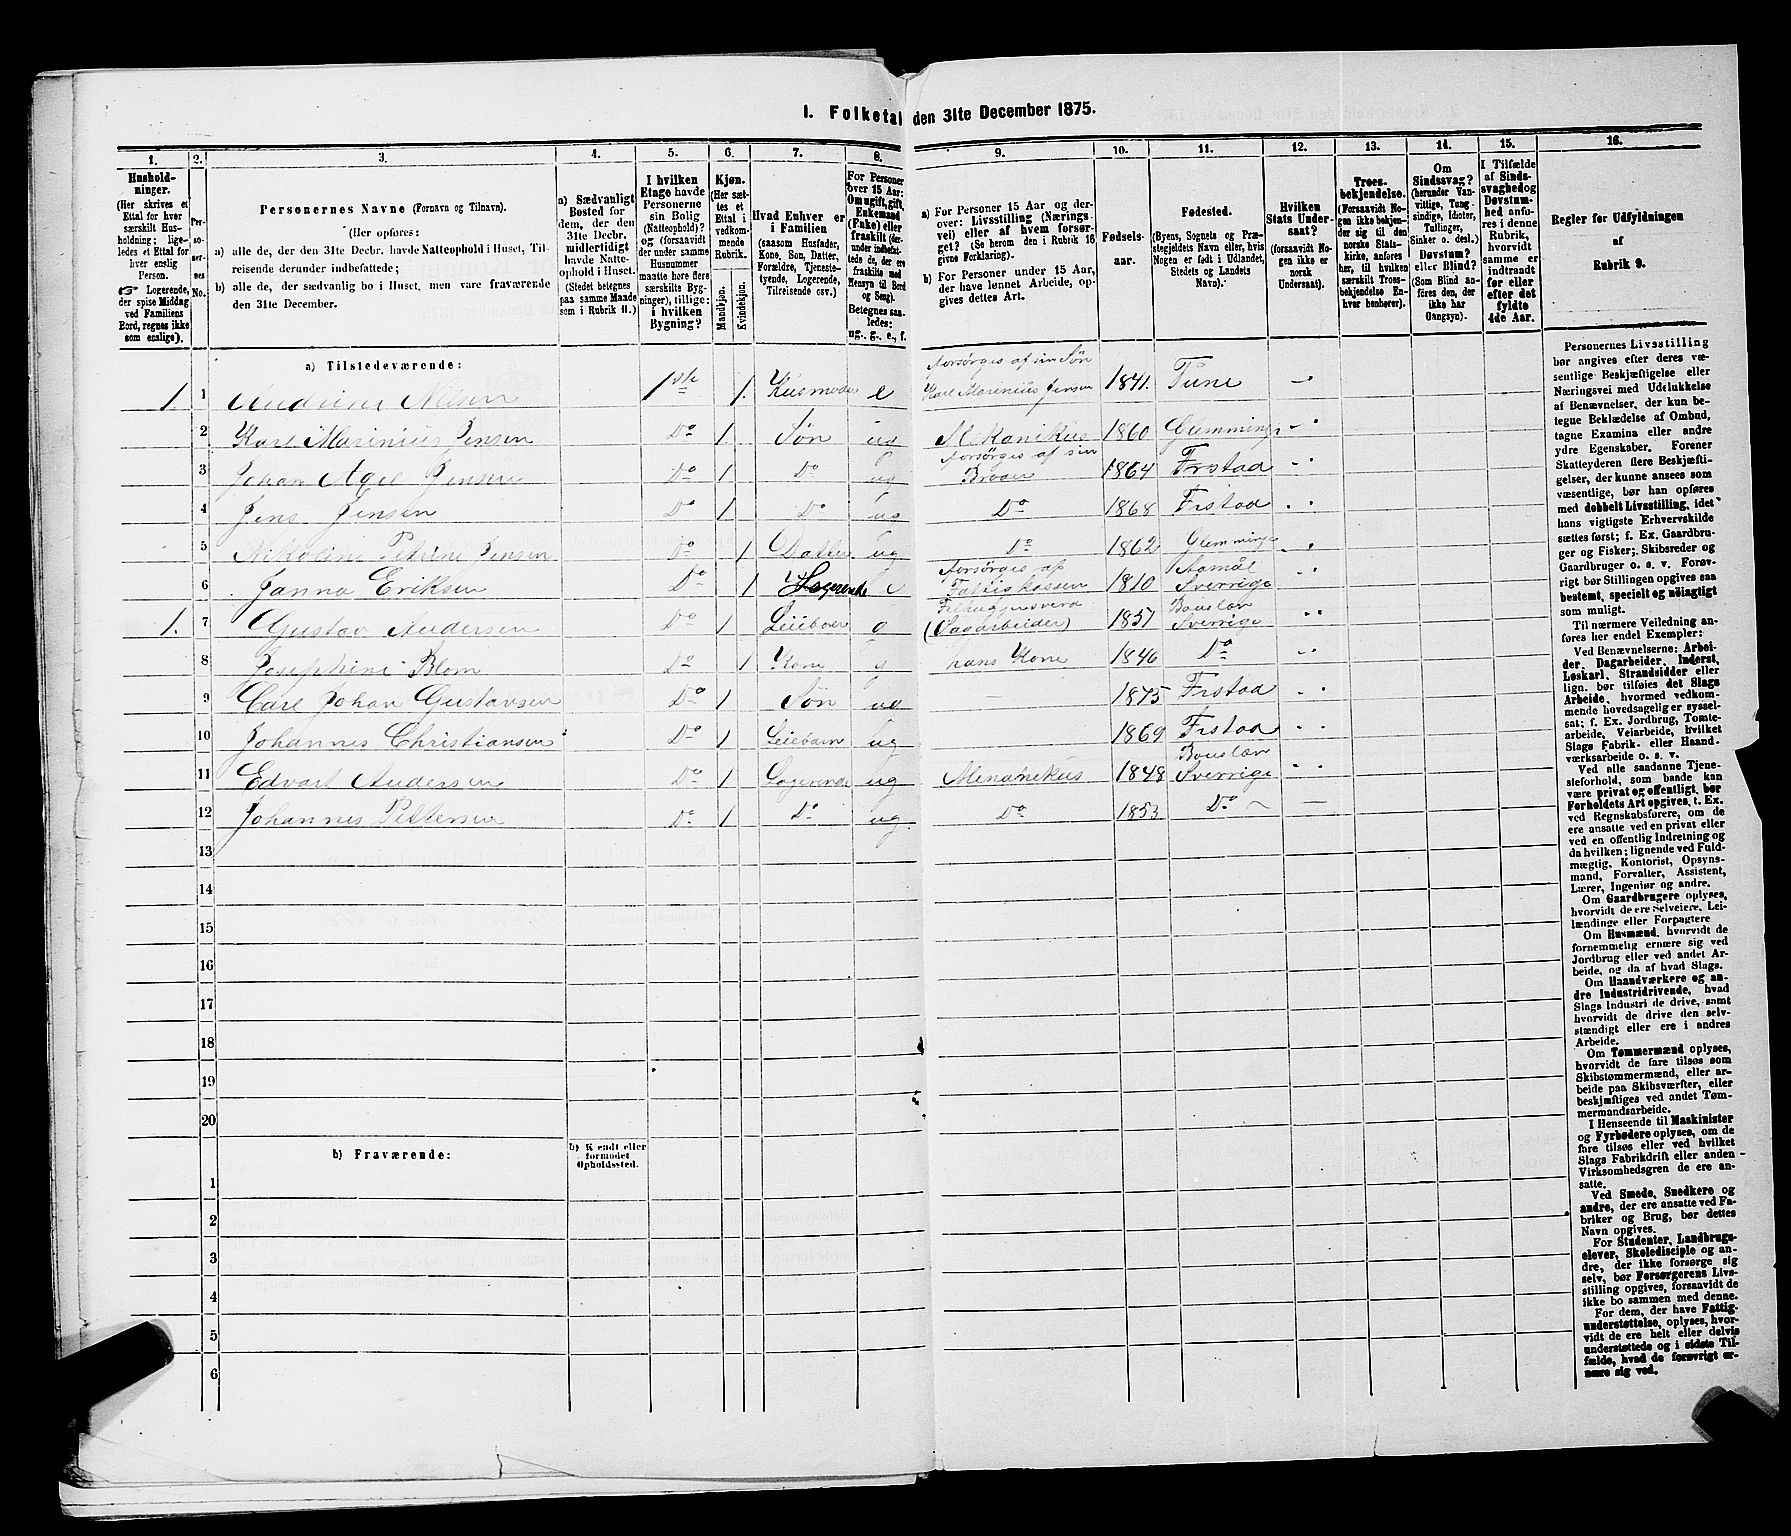 1. Folketal den 31te December 1875.
1. 2. 3. 4. 5. 6. 7. 8. 9. 10. 11. 12. 13. 14. 15. 16.
Hushold-
ninger.
(Her skrives et
Ettal for hver
særskilt Hus-
holdning; lige-
ledes et Ettal for
hver enslig
Person.
☞ Logerende,
der spise Middag
ved Familiens
Bord, regnes ikke
som enslige).
Per-
so-
ner-
nes
No.
Personernes Navne (Fornavn og Tilnavn).
(Her opføres:
a) alle de, der den 31te Decbr. havde Natteophold i Huset, Til-
reisende derunder indbefattede;
b) alle de, der sædvanlig bo i Huset, men vare fraværende
den 31te December.
a) Sædvanligt
Bosted for
dem, der den
31te Decbr.
midlertidigt
havde Natte-
ophold i Huset.
(Stedet betegnes
paa samme Maade
som i Rubrik 11.)
I hvilken
Etage havde
Personerne
sin Bolig
(Natteophold)?
og (forsaavidt
der under samme
Husnummer
maatte høre flere
særskilte Byg-
ninger), tillige:
i hvilken
Bygning?
Kjøn.
(Her sæt-
tes et
Ettal i
vedkom-
mende
Rubrik.
Mandkjøn.
Kvindekjøn.
Hvad Enhver er
i Familien
(saasom Husfader,
Kone, Søn, Datter,
Forældre, Tjeneste-
tyende, Logerende,
Tilreisende osv.)
For Personer
over 15 Aar:
Om ugift, gift,
Enkemand
(Enke) eller
fraskilt (der-
under indbefat-
tede de, der ere
fraskilte med
Hensyn til Bord
og Seng).
Betegnes saa-
ledes:
ug., g., e., f.
a) For Personer 15 Aar og der-
over: Livsstilling (Nærings-
vei) eller af hvem forsør-
get? (Se herom den i Rubrik 16
givne Forklaring).
b) For Personer under 15 Aar,
der have lønnet Arbeide, op-
gives dettes Art.
Fødsels-
aar.
Fødested.
(Byens, Sognets og Præ-
stegjeldets Navn eller, hvis
Nogen er født i Udlandet,
Stedets og Landets
Navn).
Hvilken
Stats Under-
saat?
(forsaavidt No-
gen ikke er
norsk
Undersaat).
Troes-
bekjendelse.
(Forsaavidt No-
gen ikke bekjen-
der sig til den
norske Stats-
kirke, anføres
her, til hvilken
særskilte Troes-
bekjendelse En-
hver henhører).
Om
Sindssvag?
(herunder Van-
vittige, Tung-
sindige, Idioter,
Tullinger,
Sinker o. desl.)
Døvstum?
eller Blind?
(Som Blind an-
føres den, der
ikke har
Gangsyn).
I Tilfælde
af Sinds-
svaghed og
Døvstum-
hed anfø-
res i denne
Rubrik,
hvorvidt
samme er
indtraadt
før eller
efter det
fyldte
4de Aar.
Regler for Udfyldningen
af
Rubrik 9.
a) Tilstedeværende:
1. 1 Andrine Nilsen 1ste 1. Husmoder e forsørges af sin Søn Karl Marinius Jensen 1841. Tune
2 Karl Marinius Jensen Do 1 Søn ug Mekanikus 1860 Glemminge
3 Johan Axel Jensen Do 1 Do ug forsørges af sin Broder 1864 Frstad
4 Jens Jensen Do 1 Do ug Do 1868 Frstad
5 Nikoline Petrine Jensen Do 1 Datter ug Do 1862 Glemminge
6 Janna Eriksen Do 1 Logerende e forsørges af Fattigkassen 1810 Aamål Sverrige
1. 7 Gustav Andersen Do 1 Leieboer g (Sagarbeider) 1851 Bouslæn Sverrige
8 Josephine Blom Do 1 Kone g hans Kone 1846 Do
9 Carl Johan Gustavsen Do 1 Søn ug 1875 Frstad
10 Johannes Christiansen Do 1 Leiebarn ug 1869 Frstad
11 Edvart Andersen Do 1 Logerende ug Mekanekus 1848 Bouslæn Sverrige
12 Johannes Pettersen Do 1 Do ug. Do 1853 Do
13
14
15
16
17
18
19
20
b) Fraværende:
b) Kjendt eller
formodet
Opholdssted.
1
2
3
4
5
6
Personernes Livsstilling
bør angives efter deres væ-
sentlige Beskjæftigelse eller
Næringsvei med Udelukkelse
af Benævnelser, der kun be-
tegne Beklædelse af Ombud,
tagne Examina eller andre
ydre Egenskaber. Forener
Skatteyderen flere Beskjæfti-
gelser, der kunne ansees som
væsentlige, bør han opføres
med dobbelt Livsstilling, idet
hans vigtigste Erhvervskilde
sættes først; f. Ex. Gaardbru-
ger og Fisker; Skibsreder og
Gaardbruger o. s. v. Forøv-
rigt bør Stillingen opgives saa
bestemt, specielt og nøiagtigt
som muligt.
Til nærmere Veiledning an-
føres her endel Exempler:
Ved Benævnelserne: Arbei-
der, Dagarbeider, Inderst,
Løskarl, Strandsidder eller
lign. bør tilføies det Slags
Arbeide, hvormed vedkom-
mende hovedsagelig er syssel-
sat; f. Ex. Jordbrug, Tomte-
arbeide, Veiarbeide, hvilket
Slags Fabrik- eller Haand-
værksarbeide o. s. v.
Ved alle saadanne Tjene-
steforhold, som baade kan
være privat og offentligt, bør
Forholdets Art opgives, t. Ex.
ved Regnskabsførere, om de
ere ansatte ved en privat eller
ved en offentlig Indretning og
da hvilken; lignende ved Fuld-
mægtig, Kontorist, Opsyns-
mand, Forvalter, Assistent,
Lærer, Ingeniør og andre.
Om Gaardbrugere oplyses,
hvorvidt de ere Selveiere, Lei-
lændinge eller Forpagtere
Om Husmænd, hvorvidt de
fornemmelig ernære sig ved
Jordbrug eller ved andet Ar-
beide, og da af hvad Slags.
Om Haandværkere og an-
dre Industridrivende, hvad
Slags Industri de drive, samt
hvorvidt de drive den selv-
stændigt eller ere i andres
Arbeide.
Om Tømmermænd oplyses,
hvorvidt de fare tilsøs som
Skibstømmermænd, eller ar-
beide paa Skibsværfter, eller
beskjæftiges ved andet Tøm-
mermandsarbeide.
I Henseende til Maskinister
og Fyrbødere oplyses, om de
fare tilsøs eller ved hvilket
Slags Fabrikdrift eller anden
Virksomhedsgren de ere an-
satte.
Ved Smede, Snedkere og
andre, der ere ansatte ved Fa-
briker og Brug, bør dettes
Navn opgives.
For Studenter, Landbrugs-
elever, Skoledisciple og an-
dre, der ikke forsørge sig
selv, bør Forsørgerens Livs-
stilling opgives, forsaavidt de
ikke bo sammen med denne.
For dem, der have Fattig-
understøttelse, oplyses, hvor-
vidt de ere helt eller delvis
understøttede og i sidste Til-
fælde, hvad de forøvrigt er-
nære sig ved.